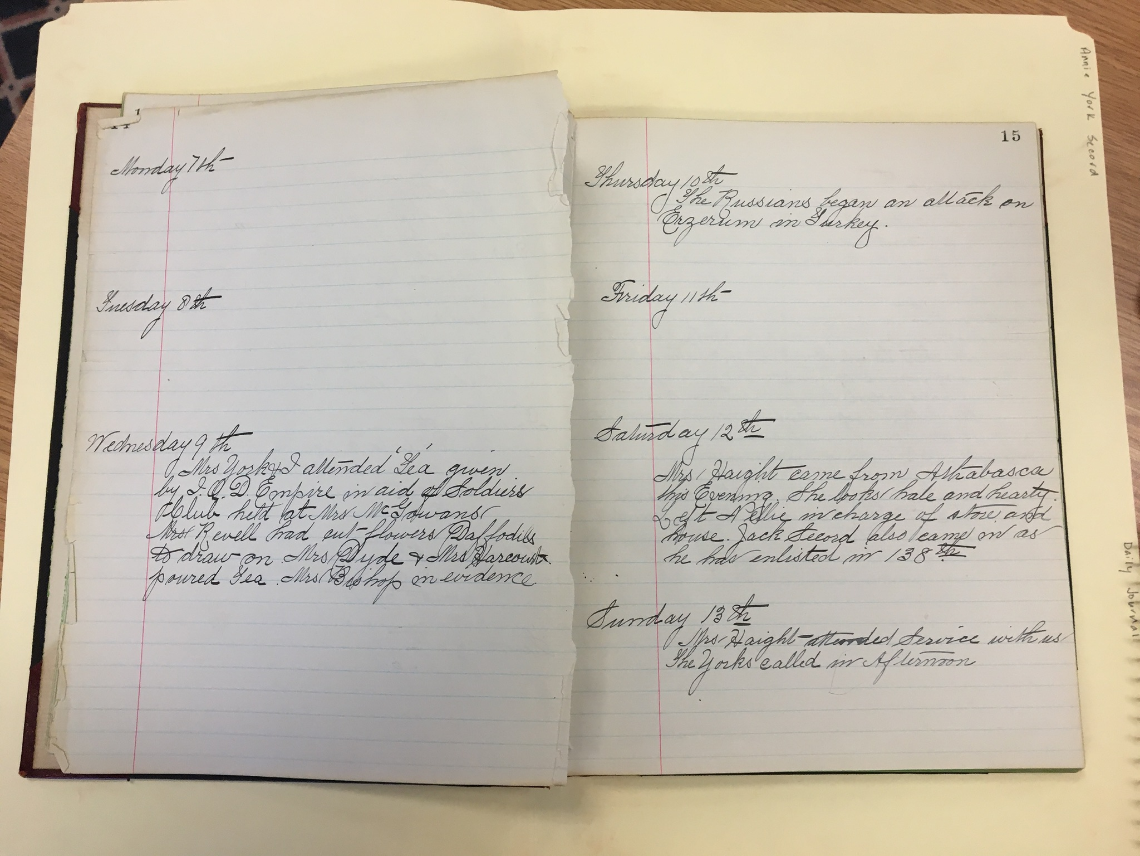 14
Monday 7th
Tuesday 8th
Wednesday 9th
Mrs York & I attended 'Tea given
by I.O.D. Empire in aid of Soldiers
Club held at Mrs McGowans
Mrs Revell had cut flowers Daffodils
to draw on Mrs Dyde & Mrs Harcourt
poured Tea. Mrs Bishop in evidence
15
Thursday 10th
The Russians began an attack on
Erzerum in Turkey.
Friday 11th
Saturday 12th
Mrs Haight came from Athabasca
this Evening. She looks hale and hearty.
Left Nellie in charge of store and
house. Jack Secord also came in as
he has enlisted in 138th
Sunday 13th
Mrs Haight attended Service with us
The Yorks called in Afternoon
Annie York Secord
Daily Journal